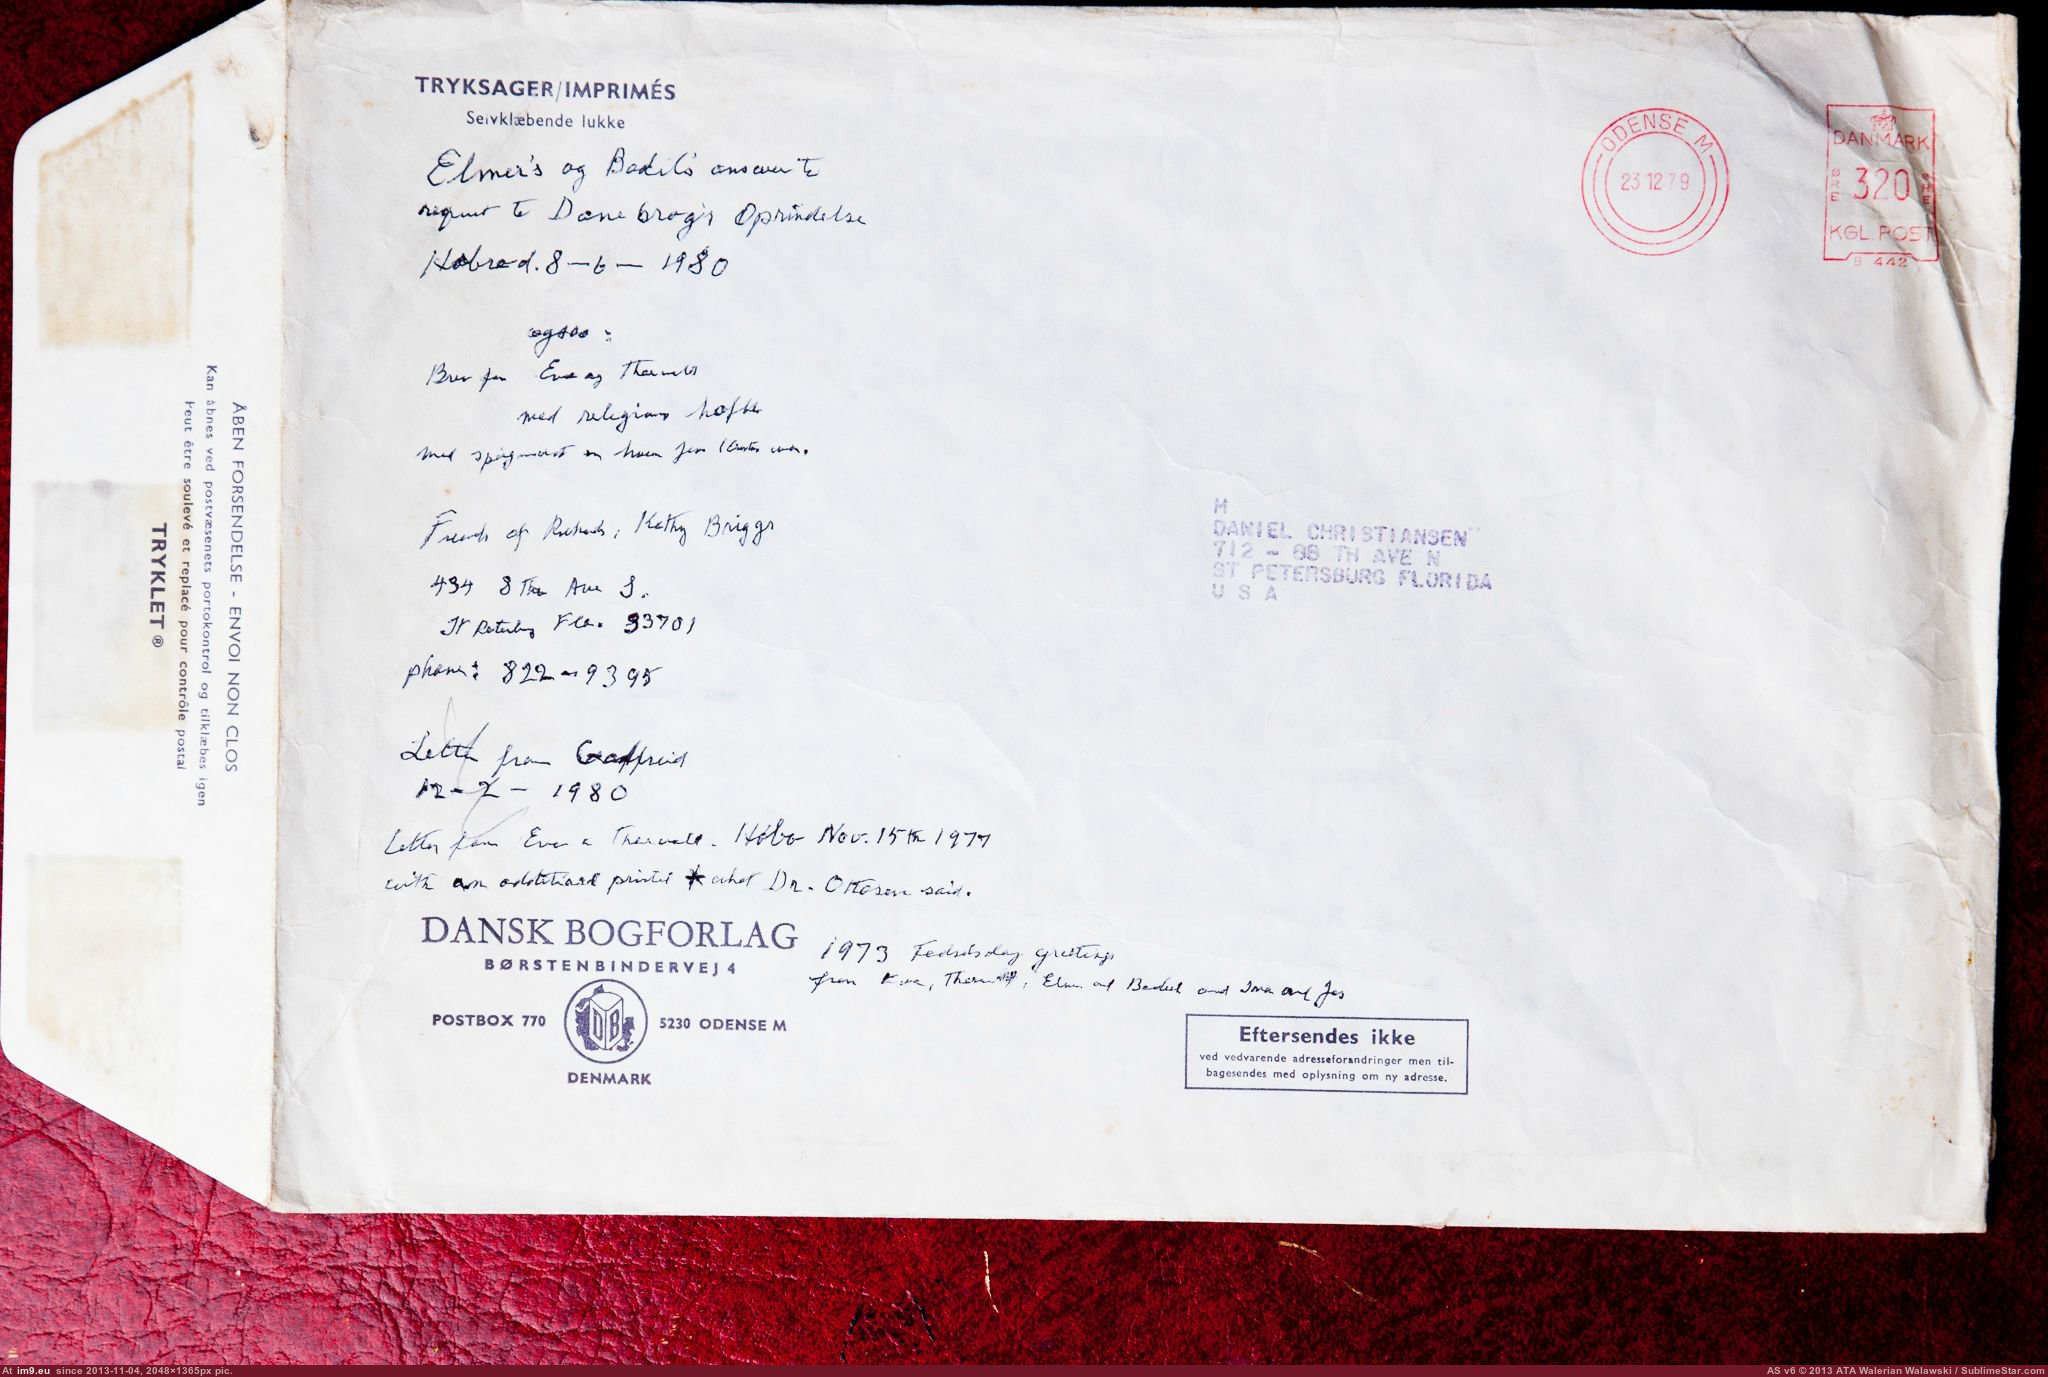 TRYKSAGER/IMPRIMÉS
Selvklæbende lukke
Elmer's og Bodil's answer to
request to Danebrog's Oprindelse
Hobro d. 8-6-1980
ogsaa:
Brev fra Eva og Thorvald
med religiøus hæfter
med spørgsmaalet om hvem Jens var.
Friends of Kathy Briggs
434 8 Th Ave S.
St Petersburg Fla. 33701
phone: 822-9395
Letter from Godfreid
12-2-1980
Letter from Eva & Thorvald. Hobro Nov. 15th 1977
with an additional printed * what Dr. Ottosen said.
1973 Fødselsdag greetings
from Eva, Thorvald, Elmer and Bodil and Ina and Jes
DANSK BOGFORLAG
BØRSTENBINDERVEJ 4
POSTBOX 770
DB
5230 ODENSE M
DENMARK
ODENSE M
23 12 79
DANMARK
ØRE 320 ØRE
KGL POST
B 442
M
DANIEL CHRISTIANSEN
712 - 88 TH AVE N
ST PETERSBURG FLORIDA
U S A
Eftersendes ikke
ved vedvarende adresseforandringer men til-
bagesendes med oplysning om ny adresse.
ÅBEN FORSENDELSE - ENVOI NON CLOS
Kan åbnes ved postvæsenets portokontrol og tilklæbes igen
Peut être soulevé et replacé pour contrôle postal
TRYKLET ®
At im9.eu since 2013-11-04, 2048×1365px pic.
AS v6 © 2013 ATA Walerian Walawski / SublimeStar.com